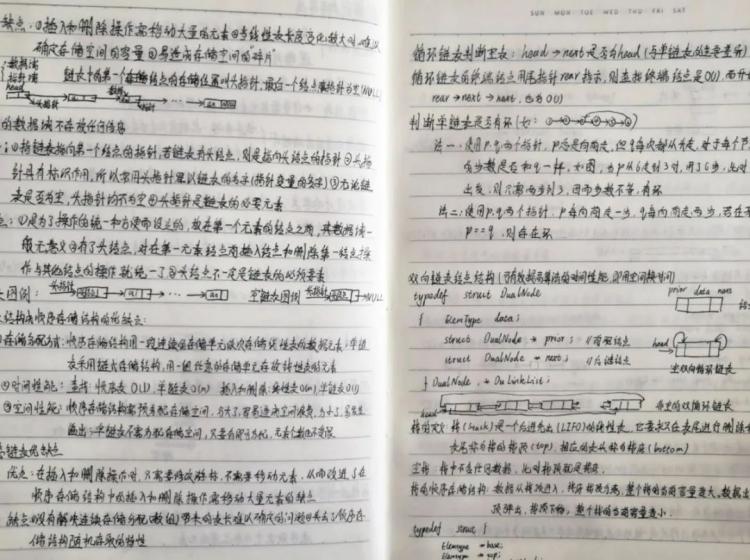 缺点：①插入和删除操作需移动大量的元素②当线性表长度变化较大时，难以
确定存储空间的容量③易造成存储空间的"碎片"
数据域
指针域
链表中的第一个结点的存储位置叫头指针，最后一个结点指针为空(NULL)
head
头指针
的数据域不存放任何信息
：①指链表指向第一个结点的指针，若链表有头结点，则是指向头结点的指针②头指
针具有标识作用，所以常用头指针冠以链表的名字(指针变量的名字)③无论链
表是否为空，头指针均不为空④头指针是链表的必要元素
：①是为了操作的统一和方便而设立的，放在第一个元素的结点之前，其数据域一
般无意义②有了头结点，对在第一元素结点前插入结点和删除第一结点操
作与其他结点的操作就统一了③头结点不一定是链表的必须要素
图例： 头指针 空链表图例 头指针 NULL
结构与顺序存储结构的优缺点：
①存储分配方式：顺序存储结构用一段连续的存储单元依次存储线性表的数据元素，单链
表采用链式存储结构，用一组任意的存储单元存放线性表的元素
②时间性能：查找 顺序表O(1)，单链表O(n) 插入和删除：顺序表O(n)，单链表O(1)
③空间性能：顺序存储结构需预分配存储空间，分大了，容易造成空间浪费，分小了，容易发生
溢出；单链表不需要分配存储空间，只要有就可分配，元素个数也不受限
链表优缺点
优点：在插入和删除操作时，只需要修改游标，不需要移动元素，从而改进了在
顺序存储结构中的插入和删除操作需移动大量元素的缺点
缺点：①没有解决连续存储分配(数组)带来的表长难以确定的问题②失去了顺序存
储结构随机存取的特性
SUN MON TUE WED THU FRI SAT
循环链表判断空表：head→next是否为head(与单链表的主要差异)
循环链表的终端结点用尾指针rear指示，则查找终端结点是O(1)，而开
rear→next→next，也为O(1)
判断单链表是否有环(如：
法一：使用p，q两个指针，p总是向前走，但q每次都从头走，对于每个
走步数是否和q一样，如图，当p从6走到3时，用了6步，此时
出发，则只需两步到3，因而步数不等，有环
法二：使用p，q两个指针，p每次向前走一步，q每次向前走两步，若在
p==q，则存在环
双向链表结点结构(可有效提高算法的时间性能，即用空间换时间)
typedef struct DualNode
prior data next
{ ElemType data;
struct DualNode *prior; //前驱结点
struct DualNode *next; //后继结点
head
空双向循环链表
} DualNode, *DuLinkList;
head
非空的双循环链表
栈的定义：栈(stack)是一个后进先出(LIFO)的线性表，它要求只在表尾进行删除
表尾称为栈的栈顶(top)，相应的表头称为栈底(bottom)
空栈：栈中不含任何数据，此时栈顶就是栈底
栈的顺序存储结构：数据从栈顶进入，栈底栈顶分离，整个栈的当前容量变大，数据出
顶弹出，栈顶下移，整个栈的当前容量变小
typedef struct {
ElemType *base;
ElemType *top;